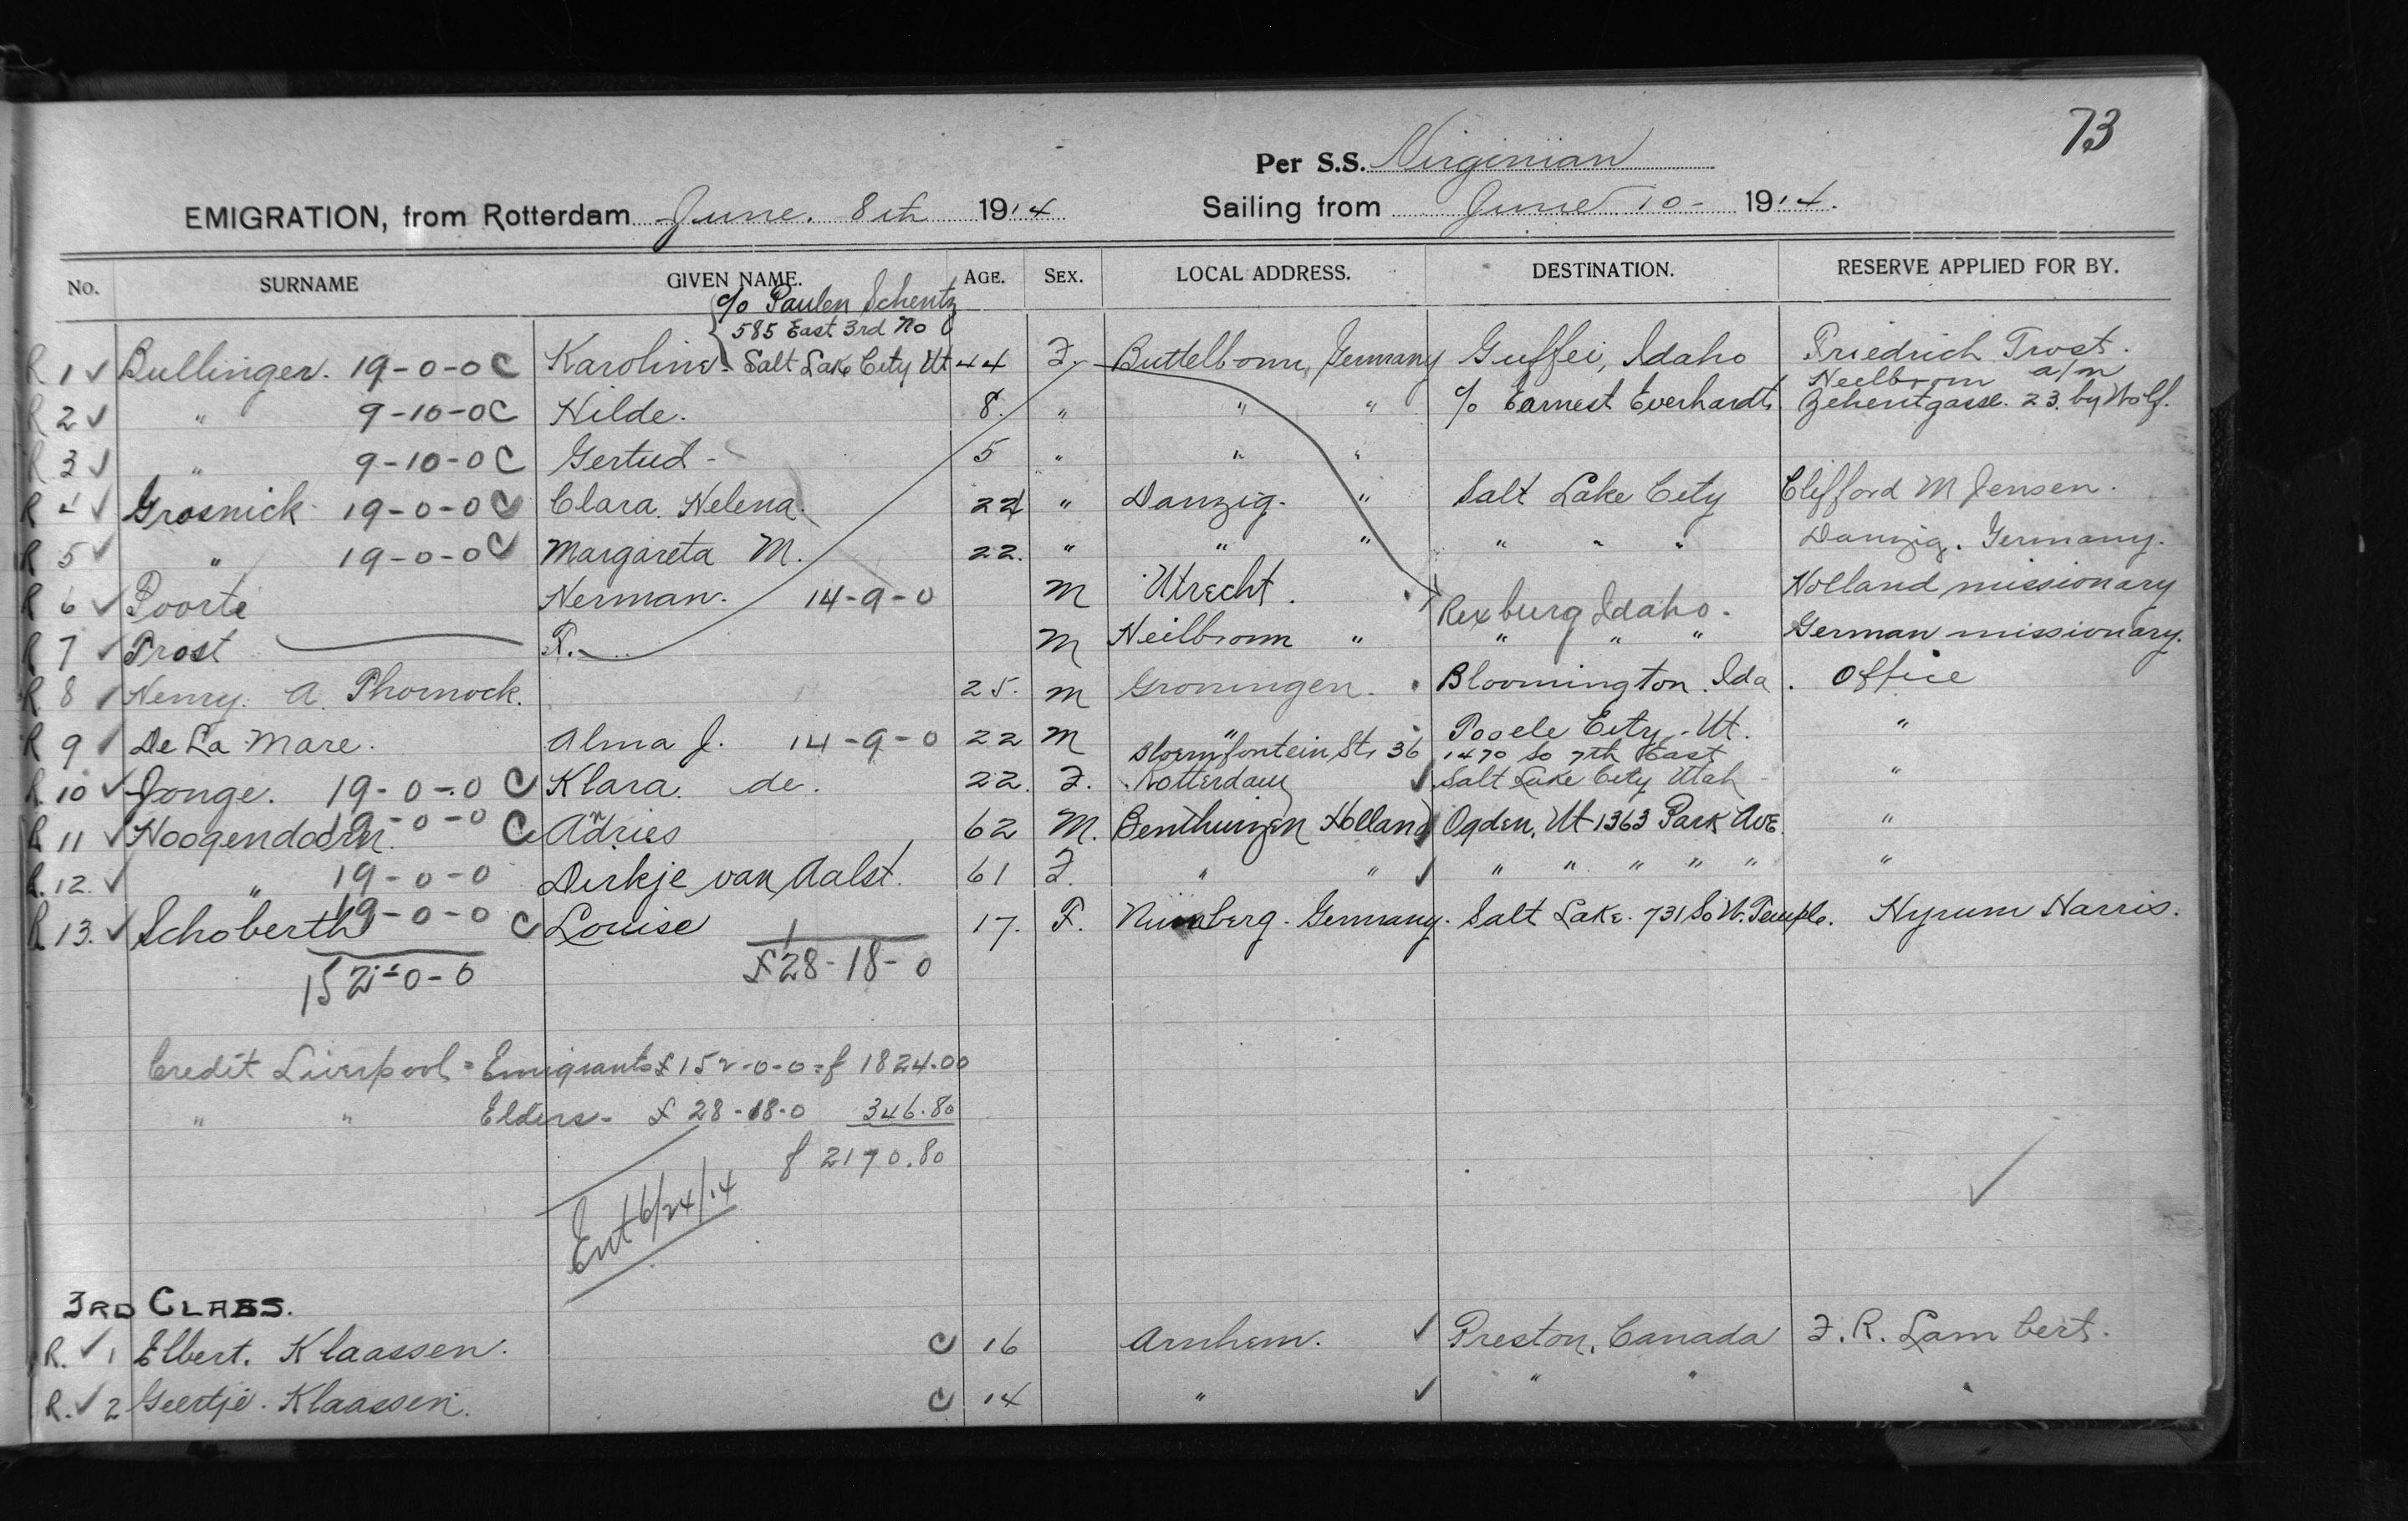 73
Per S.S. Virginian
EMIGRATION, from Rotterdam June. 8th 1914 Sailing from June 10- 1914.
No. SURNAME GIVEN NAME. AGE. SEX. LOCAL ADDRESS. DESTINATION. RESERVE APPLIED FOR BY.
c/o Paulen Schentz
585 East 3rd No
R 1 ✓ Bullinger. 19-0-0 C Karoline. Salt Lake City Ut 44 F. Buttelbonn, Germany Guffei, Idaho Friedrich Trost.
Heilbronn a/n
R 2 ✓ " 9-10-0 C Hilde. 8. " " " c/o Earnest Everhardt. Zehentgasse. 23. by Wolf.
R 3 ✓ " 9-10-0 C Gertud - 5 " " "
R 4 ✓ Grosnick 19-0-0 C Clara. Helena. 22 " Danzig. " Salt Lake City Clifford M Jensen.
R 5 ✓ " 19-0-0 C Margareta M. 22. " " " " " " Danzig. Germany.
R 6 ✓ Poorte Herman. 14-9-0 M Utrecht. Rexburg Idaho. Holland missionary
R 7 ✓ Trost F. M Heilbronn " " " " German missionary.
R 8 Henry. A. Thornock. 25. M Groningen. Bloomington. Ida. Office
R 9 De La Mare. Alma J. 14-9-0 22 M " Tooele City, Ut. "
Bloemfontein St. 36 1470 So 7th East
R. 10 ✓ Jonge. 19-0-0 C Klara. de. 22. F. Rotterdam ✓ Salt Lake City Utah "
R 11 ✓ Hoogendoorn. 19-0-0 C Andries 62 M. Benthuizen Holland Ogden, Ut 1363 Park Ave. "
R. 12. ✓ " 19-0-0 Dirkje van Aalst. 61 F. " " ✓ " " " " " "
R 13. ✓ Schoberth 19-0-0 C Louise 17. F. Nürnberg. Germany. Salt Lake. 731 So W. Temple. Hyrum Harris.
152-0-0 £28-18-0
Credit Liverpool = Emigrants £152-0-0 = f 1824.00
" " Elders - £ 28-18-0 346.80
f 2170.80
Ent 6/24/14
3RD CLASS.
R. ✓ 1 Elbert. Klaassen. C 16 Arnhem. ✓ Preston, Canada F. R. Lambert.
R. ✓ 2 Geertje. Klaassen. C 14 " ✓ " " "